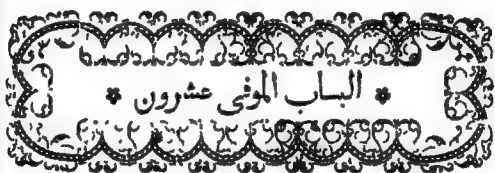 * الباب الموفى عشرون *